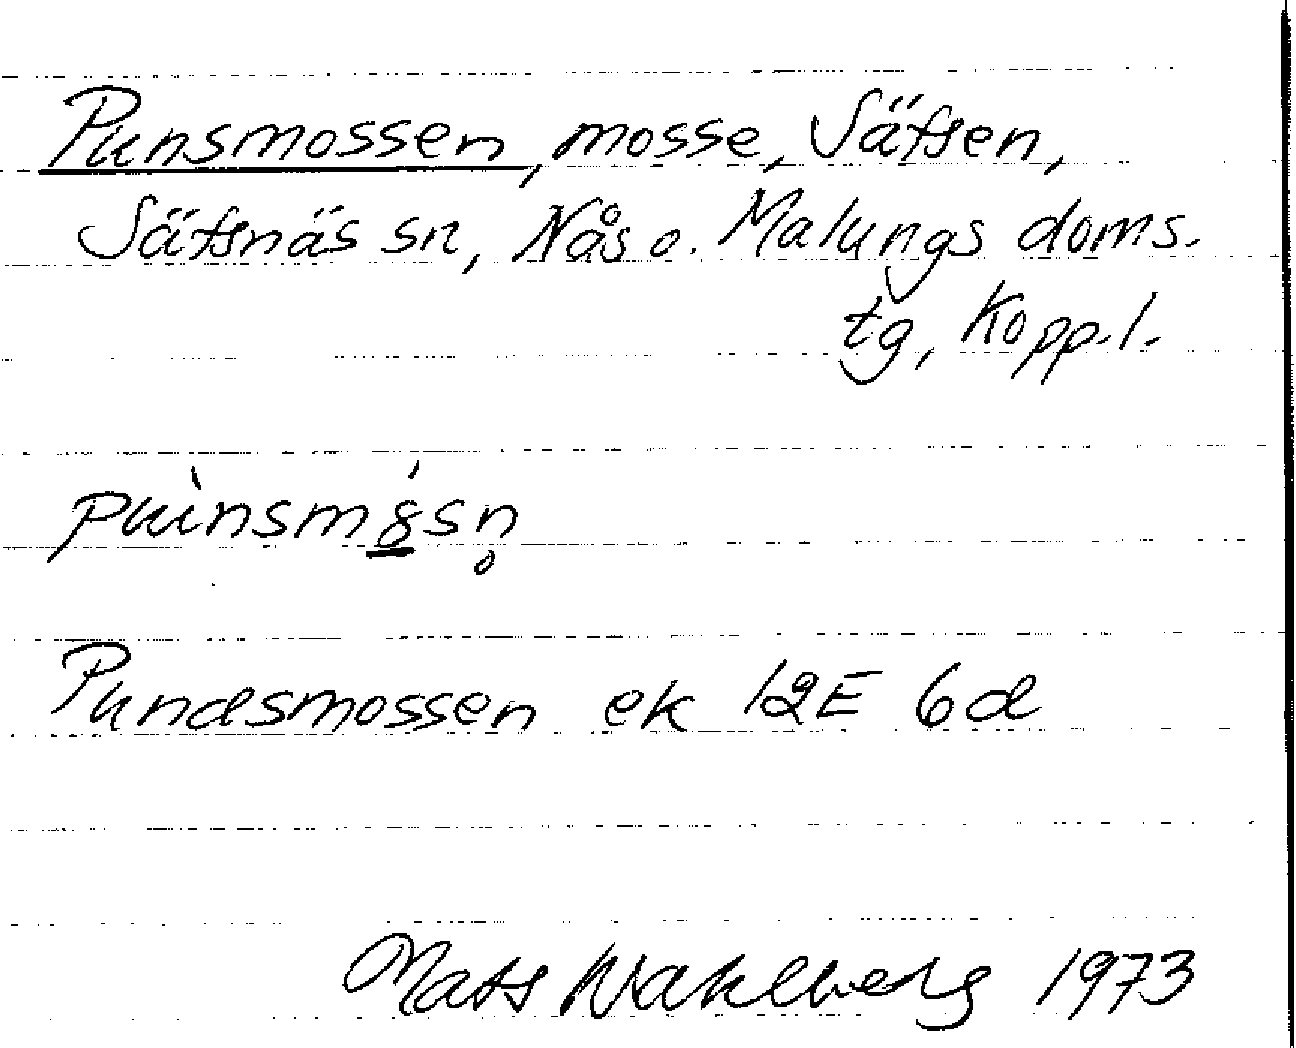 Punsmossen, mosse, Sätsen,
Säfsnäs sn, Nås o. Malungs doms.
tg, Kopp.l.
Pundsmossen ek 12E 6d
Mats Wahlberg 1973